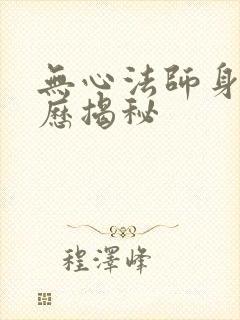 無心法師身
歷揭秘
程澤峰